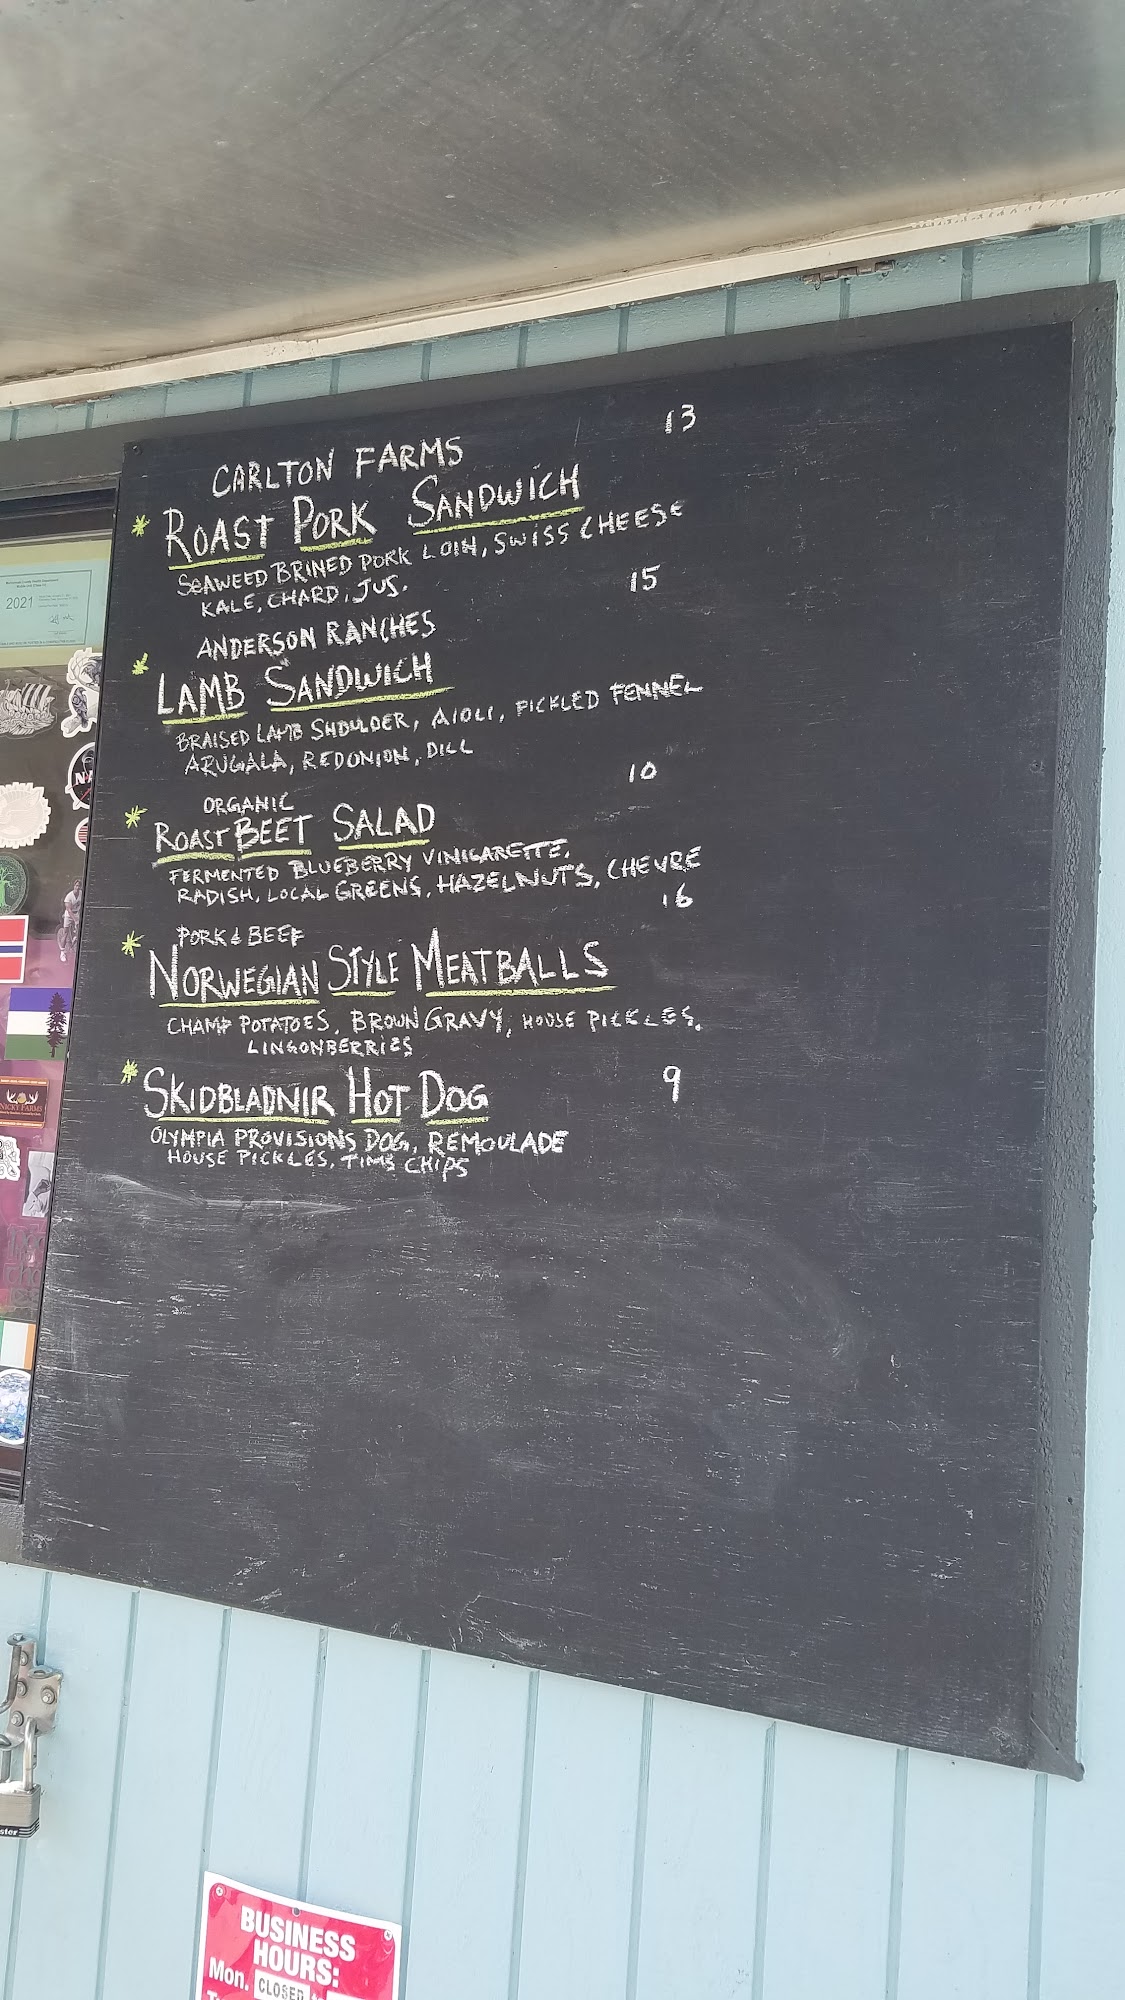 13
CARLTON FARMS
* ROAST PORK SANDWICH
SEAWEED BRINED PORK LOIN, SWISS CHEESE
KALE, CHARD, JUS.
15
ANDERSON RANCHES
* LAMB SANDWICH
BRAISED LAMB SHOULDER, AIOLI, PICKLED FENNEL
ARUGALA, REDONION, DILL
10
ORGANIC
* ROAST BEET SALAD
FERMENTED BLUEBERRY VINIGARETTE,
RADISH, LOCAL GREENS, HAZELNUTS, CHEVRE
16
PORK & BEEF
* NORWEGIAN STYLE MEATBALLS
CHAMP POTATOES, BROWN GRAVY, HOUSE PICKLES,
LINGONBERRIES
* SKIDBLADNIR HOT DOG 9
OLYMPIA PROVISIONS DOG, REMOULADE
HOUSE PICKLES, TIMS CHIPS
2021
NICKY FARMS
BUSINESS
HOURS:
Mon. CLOSED